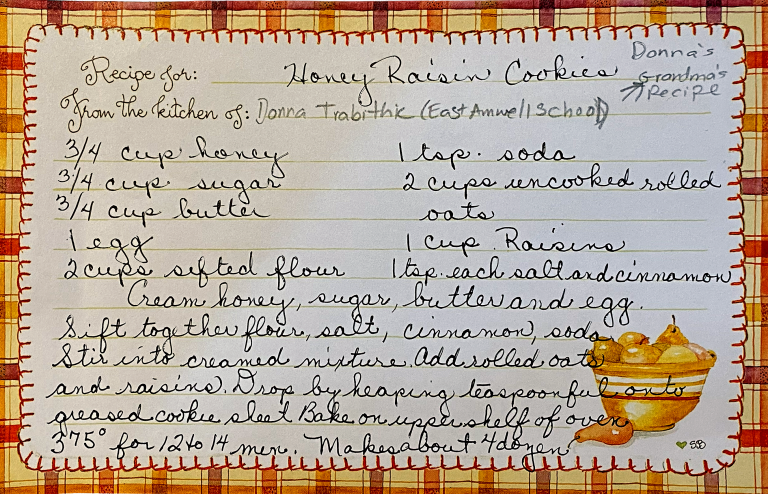 Recipe for: Honey Raisin Cookies
Donna's
Grandma's
Recipe
From the kitchen of: Donna Trabithic (East Amwell School)
3/4 cup honey
3/4 cup sugar
3/4 cup butter
1 egg
2 cups sifted flour
1 tsp. soda
2 cups uncooked rolled
oats
1 cup Raisins
1 tsp. each salt and cinnamon
Cream honey, sugar, butter and egg.
Sift together flour, salt, cinnamon, soda
Stir into creamed mixture. Add rolled oats
and raisins. Drop by heaping teaspoonful onto
greased cookie sheet Bake on upper shelf of oven
375° for 12 to 14 min. Makes about 4 dozen